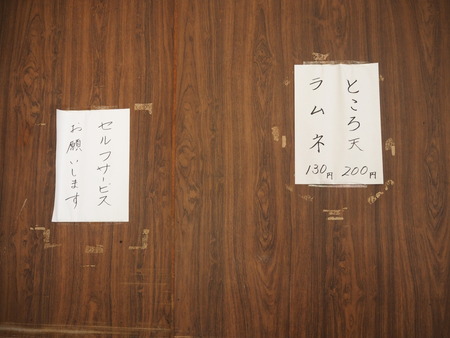 ところ天 200円
ラムネ 130円
セルフサービス
お願いします